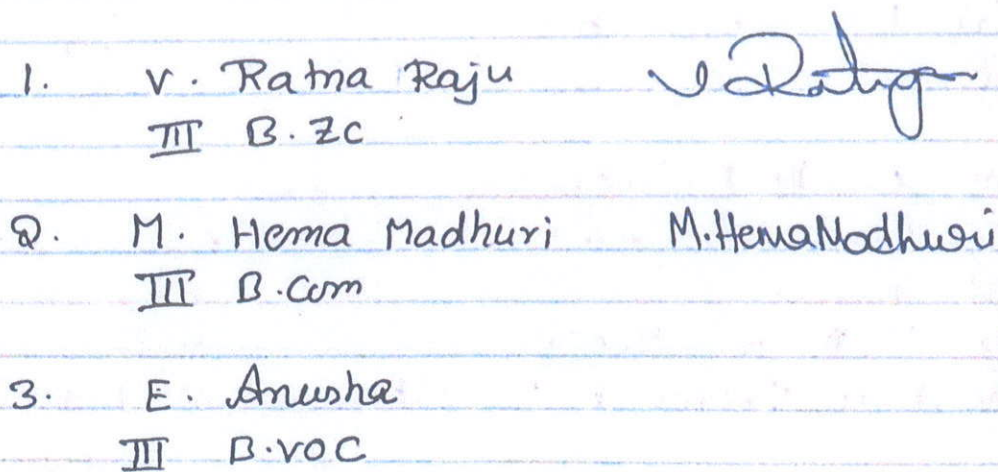 1. V. Ratna Raju V Ratna
III B.ZC
2. M. Hema Madhuri M.HemaMadhuri
III B.Com
3. E. Anusha
III B.VOC